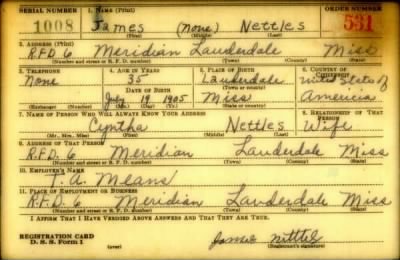 SERIAL NUMBER 1. NAME (Print) ORDER NUMBER
1008 James (none) Nettles 531
(First) (Middle) (Last)
2. ADDRESS (Print)
R.F.D. 6 Meridian Lauderdale Miss
(Number and street or R. F. D. number) (Town) (County) (State)
3. TELEPHONE 4. AGE IN YEARS 5. PLACE OF BIRTH 6. COUNTRY OF CITIZENSHIP
None 35 Lauderdale United States of
DATE OF BIRTH (Town or county)
July 19 1905 Miss America
(Exchange) (Number) (Mo.) (Day) (Yr.) (State or country)
7. NAME OF PERSON WHO WILL ALWAYS KNOW YOUR ADDRESS 8. RELATIONSHIP OF THAT PERSON
Cyntha Nettles Wife
(Mr., Mrs., Miss) (First) (Middle) (Last)
9. ADDRESS OF THAT PERSON
R.F.D. 6 Meridian Lauderdale Miss
(Number and street or R. F. D. number) (Town) (County) (State)
10. EMPLOYER'S NAME
T. A. Means
11. PLACE OF EMPLOYMENT OR BUSINESS
R.F.D. 6 Meridian Lauderdale Miss
(Number and street or R. F. D. number) (Town) (County) (State)
I AFFIRM THAT I HAVE VERIFIED ABOVE ANSWERS AND THAT THEY ARE TRUE.
REGISTRATION CARD
D. S. S. Form 1 (over) James Nettles
(Registrant's signature)